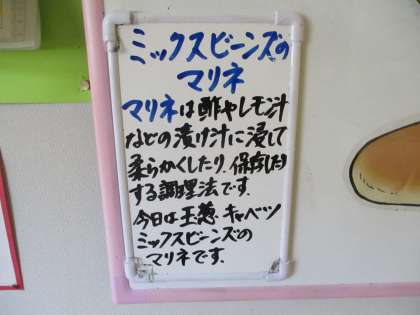 ミックスビーンズの
マリネ
マリネは酢やレモン汁
などの漬け汁に浸して
柔らかくしたり、保存したり
する調理法です。
今日は玉葱、キャベツ
ミックスビーンズの
マリネです。